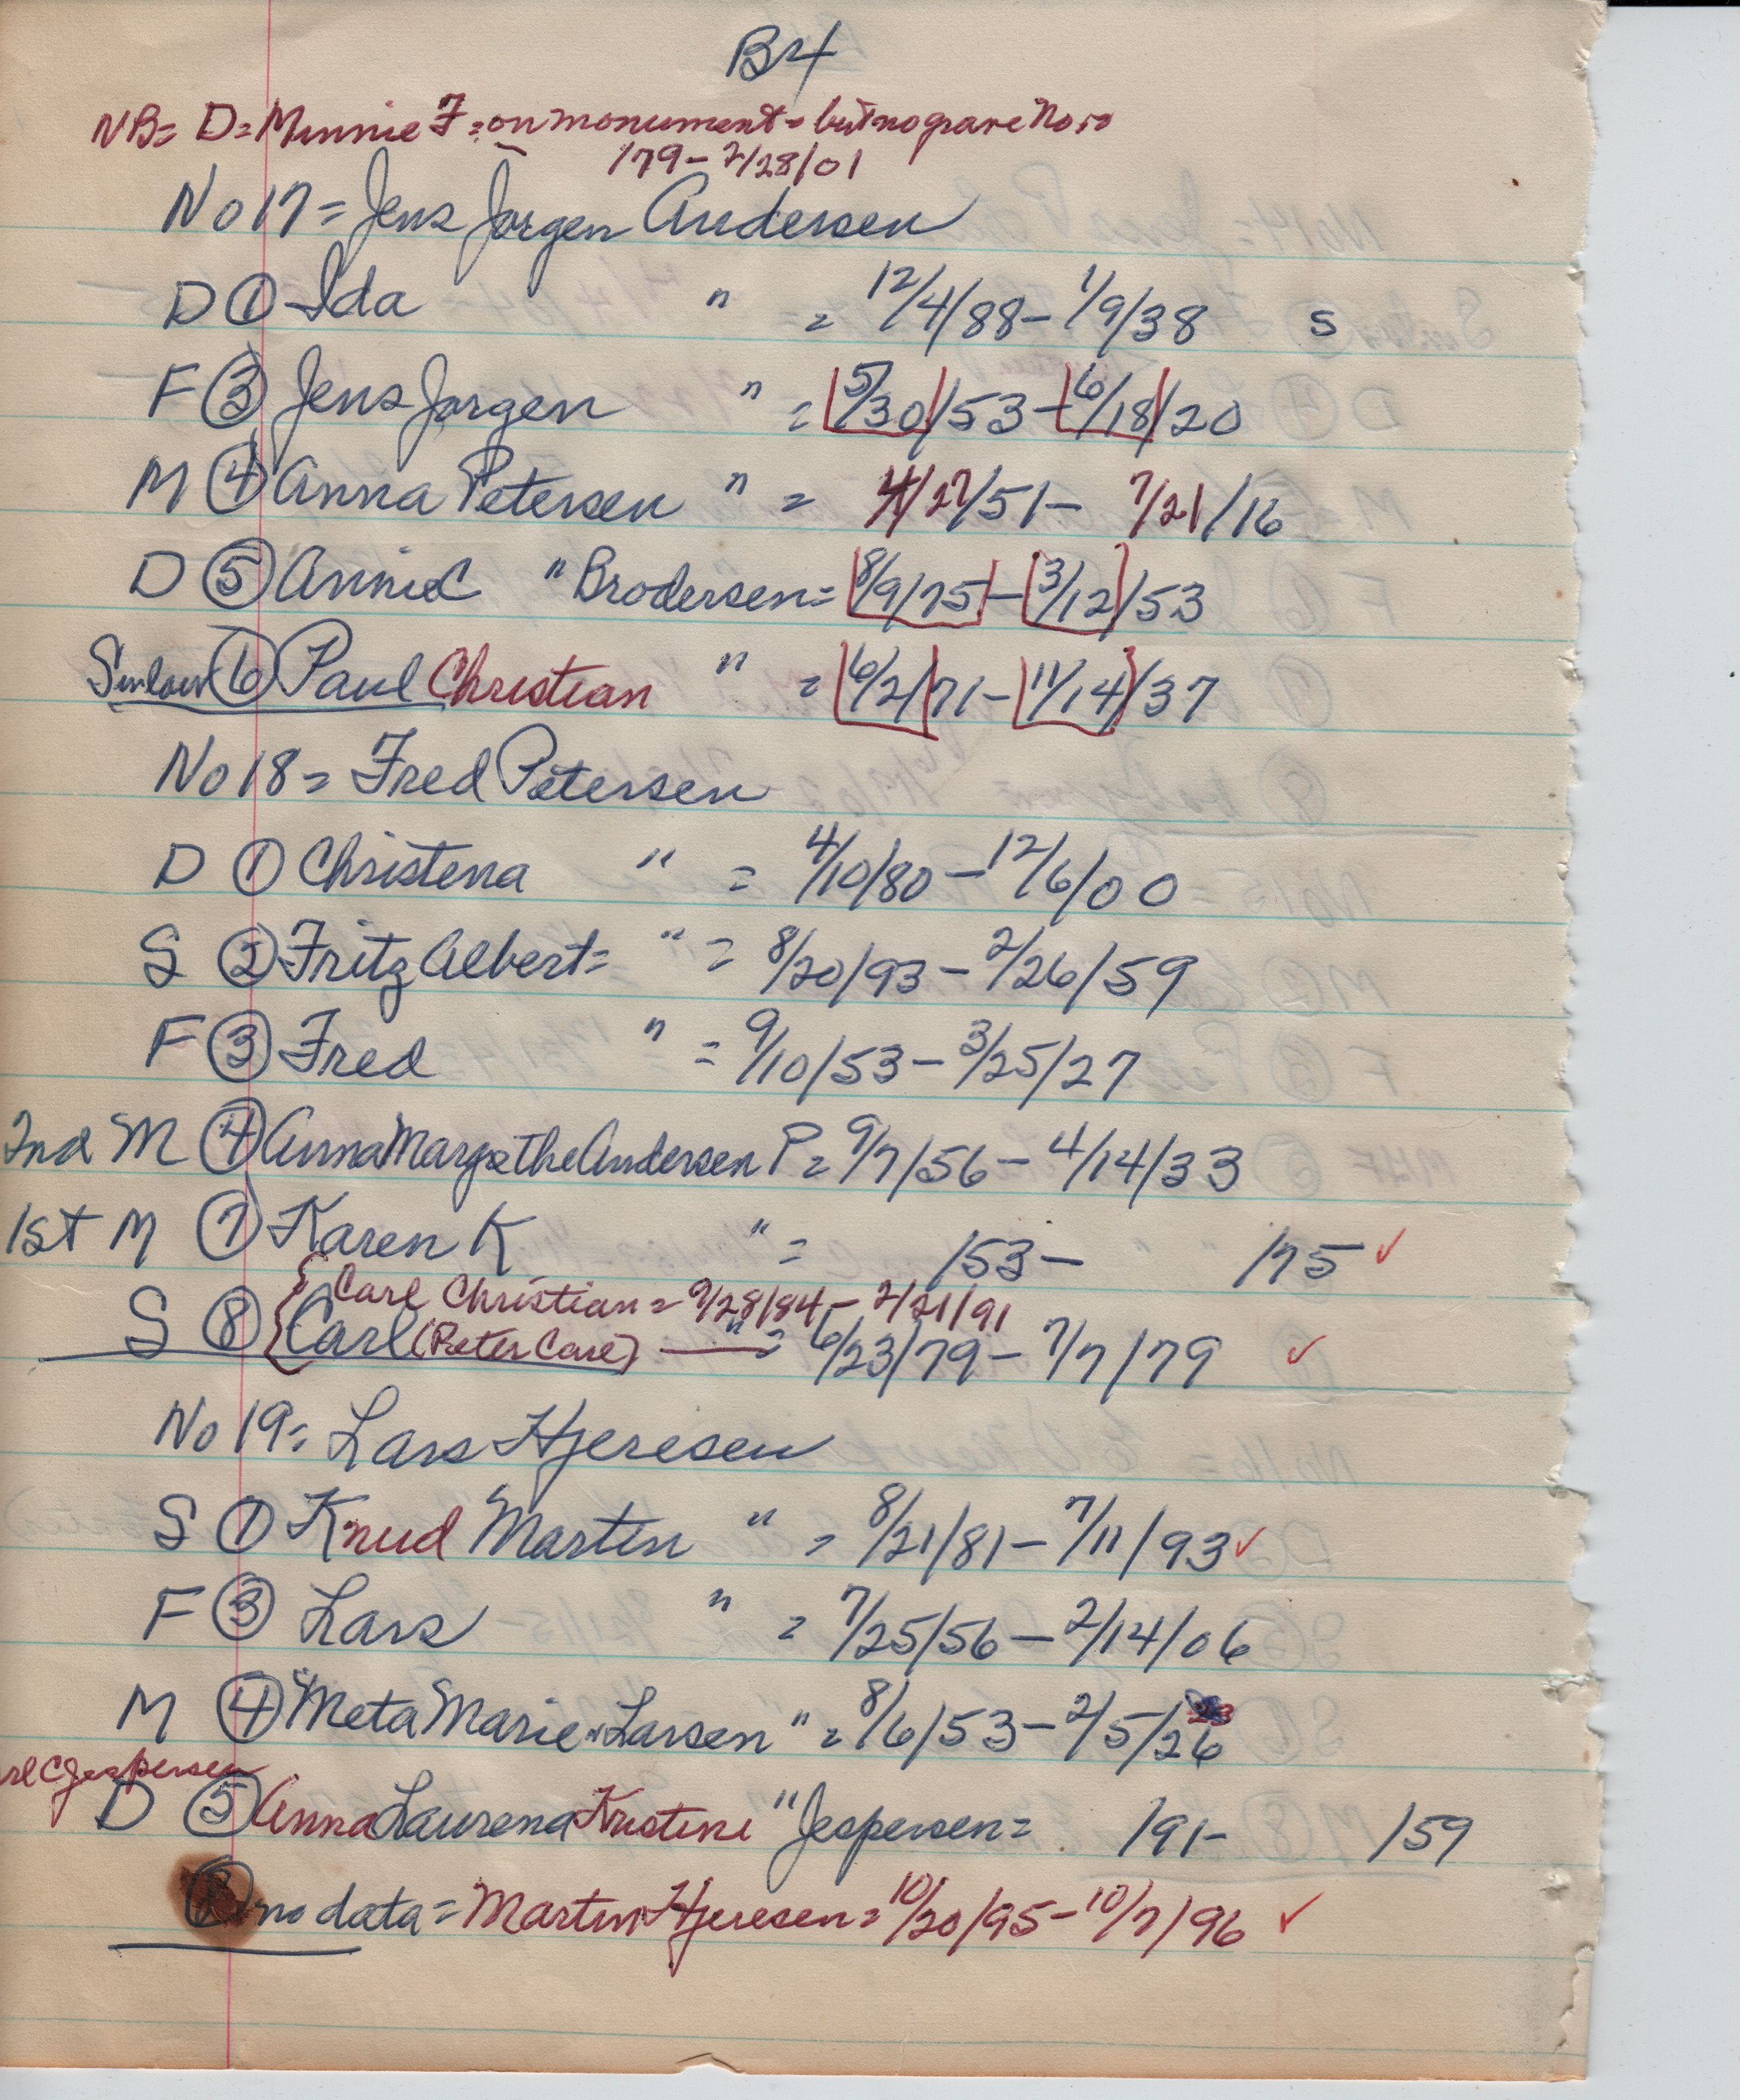 B4
NB= D= Minnie F= on monument - but no grave No.
/79 - 2/28/01
No 17 = Jens Jorgen Andersen
D ① Ida " = 12/4/88 - 1/9/38 s
F ③ Jens Jorgen " = [5/30]/53 - [6/18]/20
M ④ Anna Petersen " = 4/27/51 - 7/21/16
D ⑤ Annie C " Brodersen = [8/9/75] - [3/12]/53
Sinlaw ⑥ Paul Christian " = [6/2]/71 - [11/14]/37
No 18 = Fred Petersen
D ① Christena " = 4/10/80 - 12/6/00
S ② Fritz Albert = " = 8/20/93 - 2/26/59
F ③ Fred " = 9/10/53 - 3/25/27
2nd M ④ Anna Margrethe Andersen P = 9/7/56 - 4/14/33
1st M ⑦ Karen K " = /53 - /75 ✓
{ Carl Christian = 9/28/84 - 2/21/91
S ⑧ Carl (Peter Carl) — " = 6/23/79 - 7/7/79 ✓
No 19 = Lars Hjeresen
S ① Knud Martin " = 8/21/81 - 7/11/93 ✓
F ③ Lars " = 7/25/56 - 2/14/06
M ④ Meta Marie Larsen " = 8/6/53 - 2/5/26
C Jespersen
D ⑤ Anna Laurena Kristine " Jespersen = /91 - /59
no data = Martin Hjeresen = 10/20/95 - 10/7/96 ✓